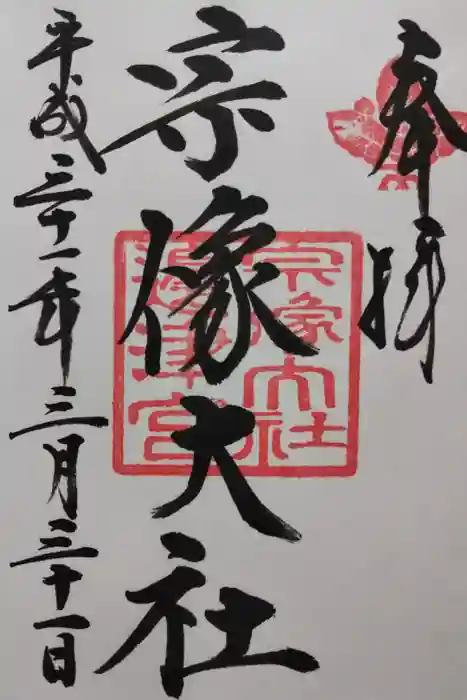 奉拝
宗像大社
平成三十一年三月三十一日
宗像大社
邊津宮